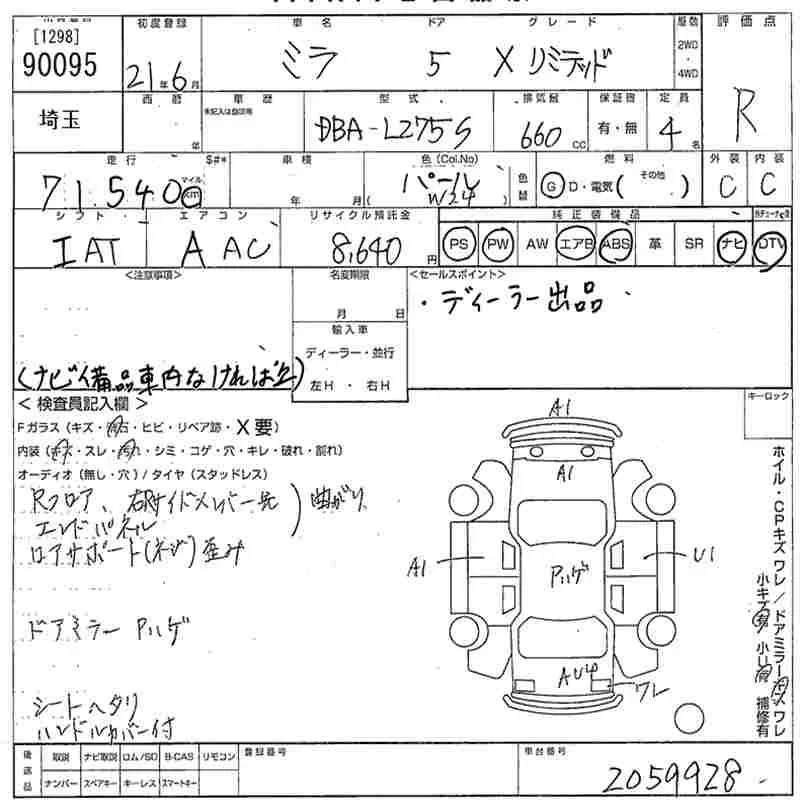 [1298]
90095
埼玉
初度登録
21年6月
車名
ミラ
ドア
5
グレード
X リミテッド
2WD
4WD
評価点
R
西暦
年
車歴
型式
DBA-L275S
排気量
660 CC
保証書
有・無
定員
4名
走行
$#*
71,540
マイル
km
車検
年 月
色(Col.No)
パール
W24
色替
燃料
G D・電気( その他 )
外装
C
内装
C
シフト
IAT
エアコン
AAC
リサイクル預託金
8,640円
純正装備品
PS PW AW エアB ABS 革 SR ナビ DTV
<注意事項>
(ナビ備品車内なければ立)
名変期限
月 日
輸入車
ディーラー・並行
左H ・ 右H
<セールスポイント>
・ディーラー出品
< 検査員記入欄 >
Fガラス(キズ・飛石・ヒビ・リペア跡・X要)
内装(キズ・スレ・汚れ・シミ・コゲ・穴・キレ・破れ・割れ)
オーディオ(無し・穴)/タイヤ(スタッドレス)
Rフロア、右Rサイドメンバー先
エンドパネル
曲がり
ロアサポート(ネジ)歪み
ドアミラー Pハゲ
シートヘタリ
ハンドルカバー付
キーロック
A1
A1
A1
Pハゲ
U1
AU4
ワレ
ホイル・CPキズ ワレ/ドアミラーキズ ワレ
補修有
後送品
取説 ナビ取説 ロム/SD B-CAS リモコン
ナンバー スペアキー キーレス スマートキー
登録番号
車台番号
2059928